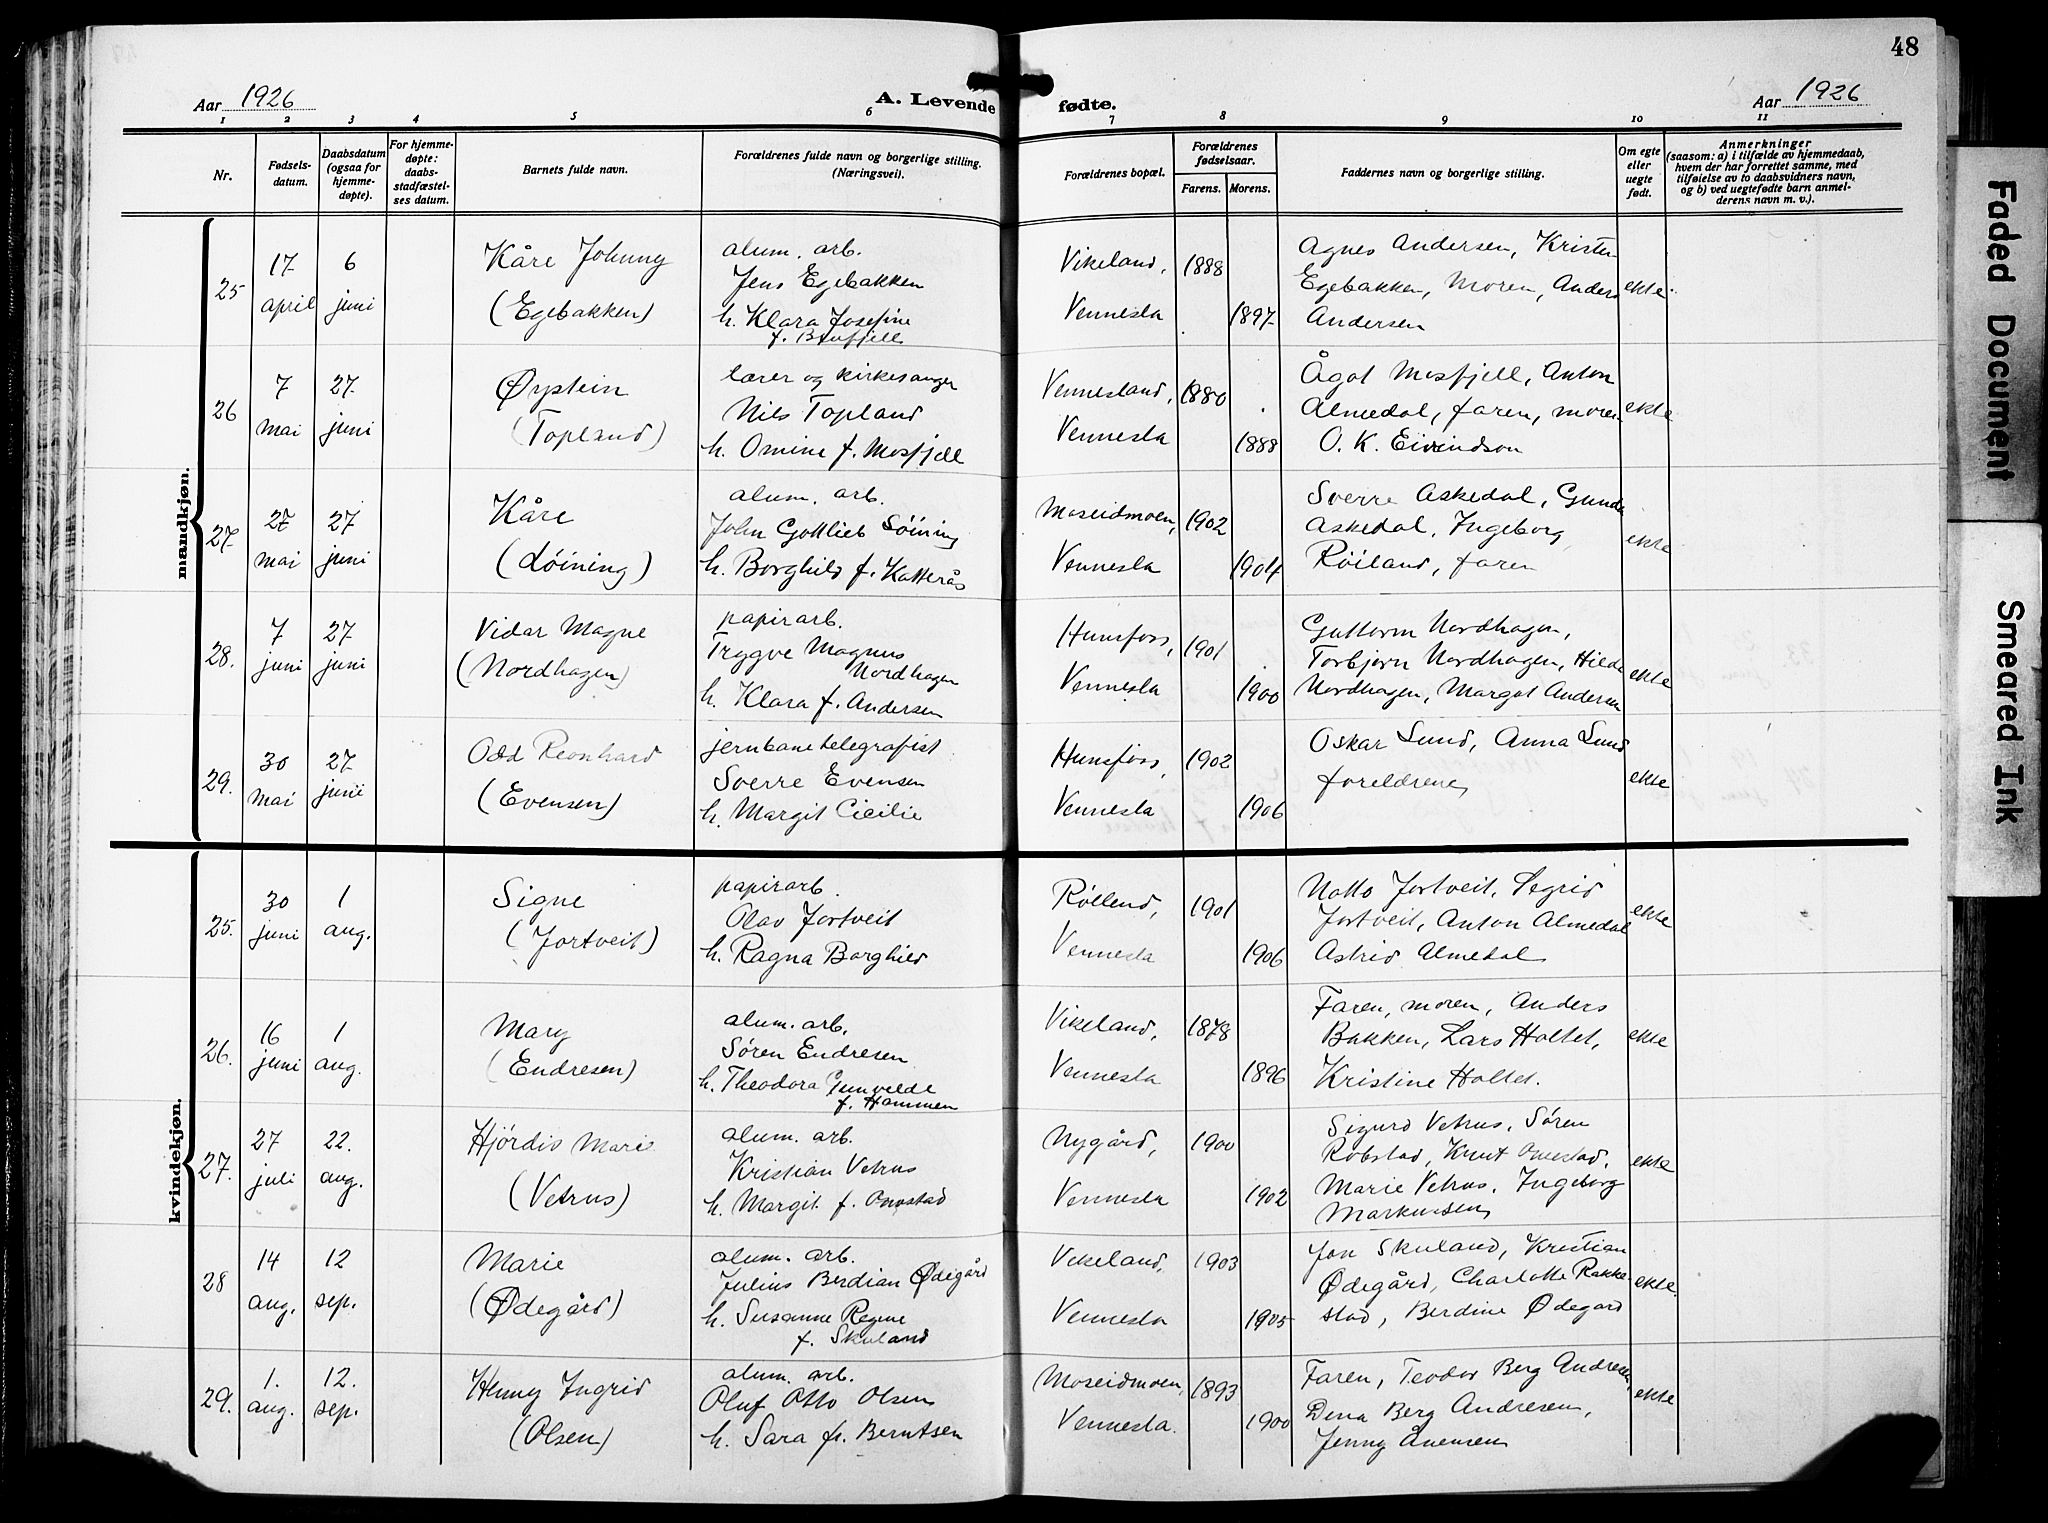 48
Aar 1926
A. Levende fødte.
Aar 1926
1 2 3 4 5 6 7 8 9 10 11
Nr.
Fødsels-
datum.
Daabsdatum
(ogsaa for
hjemme-
døpte).
For hjemme-
døpte:
daabs-
stadfæstel-
ses datum.
Barnets fulde navn.
Forældrenes fulde navn og borgerlige stilling.
(Næringsvei).
Forældrenes bopæl.
Forældrenes
fødselsaar.
Farens. Morens.
Faddernes navn og borgerlige stilling.
Om egte
eller
uegte
født.
Anmerkninger
(saasom: a) i tilfælde av hjemmedaab,
hvem der har forrettet samme, med
tilføielse av to daabsvidners navn,
og b) ved uegtefødte barn anmel-
derens navn m. v.).
mandkjøn.
25
17
april
6
juni
Kåre Johnny
(Egebakken)
alum. arb.
Jens Egebakken
h. Klara Josefine
f.
Vikeland,
Vennesla
1888
1897
Agnes Andersen, Kristen
Egebakken, Moren, Anders
Andersen
ekte
26
7
mai
27
juni
Øystein
(Topland)
lærer og kirkesanger
Nils Topland
h. Omine f. Mosfjell
Vennesland,
Vennesla
1880
1888
Ågot Mosfjell, Anton
Almedal, faren, moren
O. K. Eivindson
ekte
27
27
mai
27
juni
Kåre
(Løining)
alum. arb.
John Gottlieb Løining
h. Borghild f. Katterås
Moseidmoen,
Vennesla
1902
1904
Sverre Askedal, Gunda
Askedal, Ingeborg
Røiland, faren
ekte
28.
7
juni
27
juni
Vidar Magne
(Nordhagen)
papirarb.
Trygve Magnus
Nordhagen
h. Klara f. Andersen
Hunsfoss,
Vennesla
1901
1900
Guttorm Nordhagen,
Torbjørn Nordhagen, Hilda
Nordhagen, Margot Andersen
ekte
29.
30
mai
27
juni
Odd Reonhard
(Evensen)
jernbanetelegrafist
Sverre Evensen
h. Margit Cicilie
Hunsfoss,
Vennesla
1902
1906
Oskar Lund, Anna Lund
foreldrene
ekte
kvindekjøn.
25.
30
juni
1
aug.
Signe
(Jortveit)
papirarb.
Olav Jortveit
h. Ragna Borghild
Røiland,
Vennesla
1901
1906
Jortveit, Segrid
Jortveit, Anton Almedal
Astrid Almedal
ekte
26.
16
juni
1
aug.
Mary
(Endresen)
alum. arb.
Søren Endresen
h. Theodora Gunvelde
f. Hammen
Vikeland,
Vennesla
1878
1896
Faren, moren, Anders
Bakken, Lars Holtet,
Kristine Holtet.
ekte
27.
27
juli
22.
aug.
Hjördis Marie
(Vetrus)
alum. arb.
Kristian Vetrus
h. Margit f. Omestad
Nygård,
Vennesla
1900
1902
Sigurd Vetrus, Søren
Robstad, Knut Omestad,
Marie Vetrus, Ingeborg
Markussen
ekte
28
14
aug.
12
sep.
Marie
(Ødegård)
alum. arb.
Julius Berdian Ødegård
h. Susanne Regine
f. Skuland
Vikeland,
Vennesla
1903
1905
Jon Skuland, Kristian
Ødegård, Charlotte Rakke-
stad, Berdine Ødegard
ekte.
29.
1.
aug.
12.
sep.
Henny Ingrid
(Olsen)
alum. arb.
Oluf Otto Olsen
h. Sara f. Berntsen
Moseidmoen,
Vennesla.
1893
1900
Faren, Teodor Berg Andresen,
Dena Berg Andresen,
Jenny
ekte
Faded Document
Smeared Ink